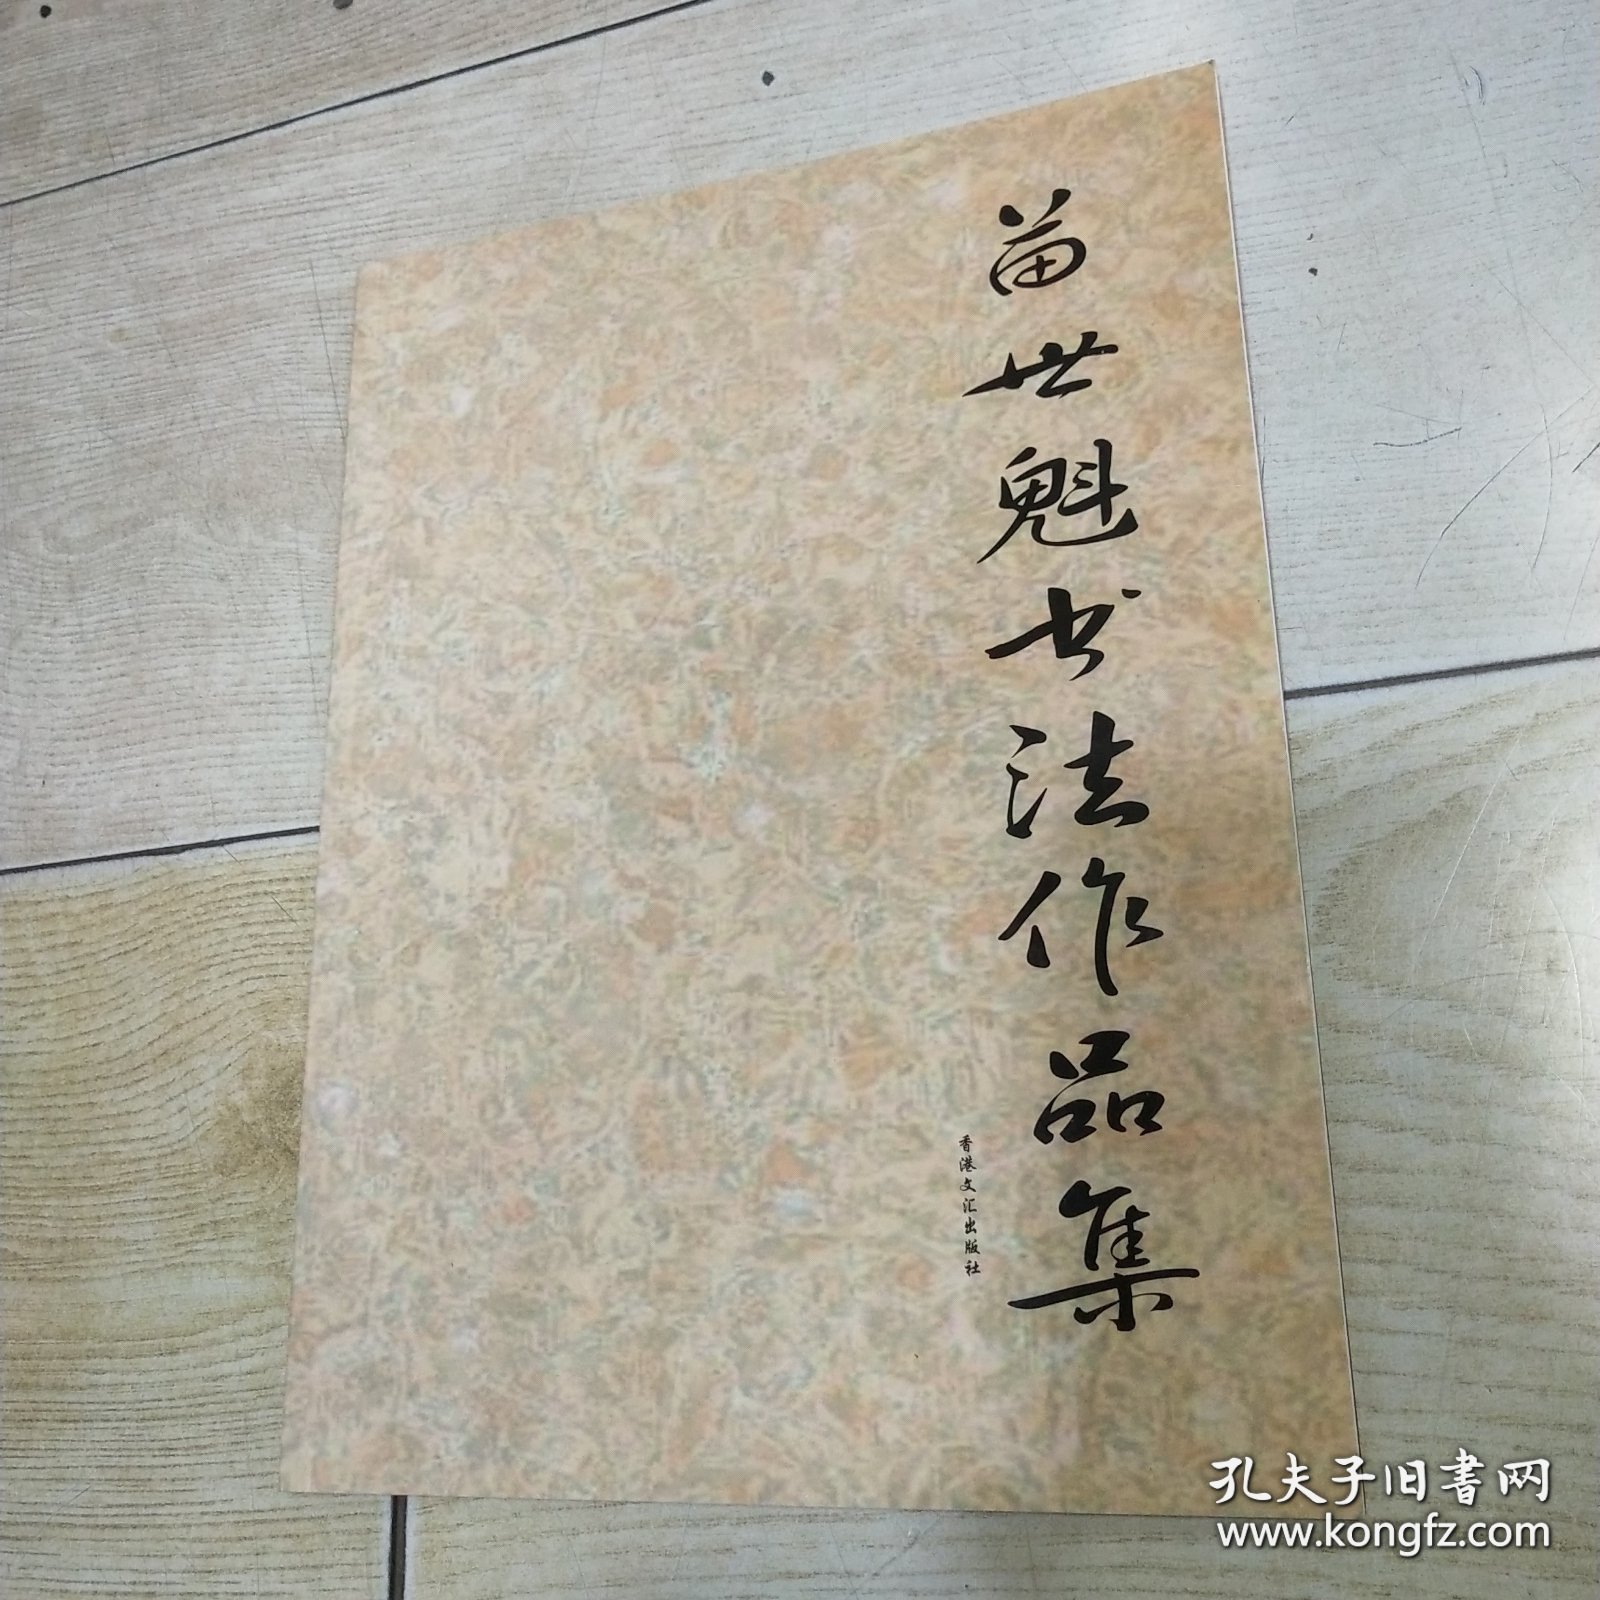 苗世魁书法作品集
香港文汇出版社
孔夫子旧书网
www.kongfz.com